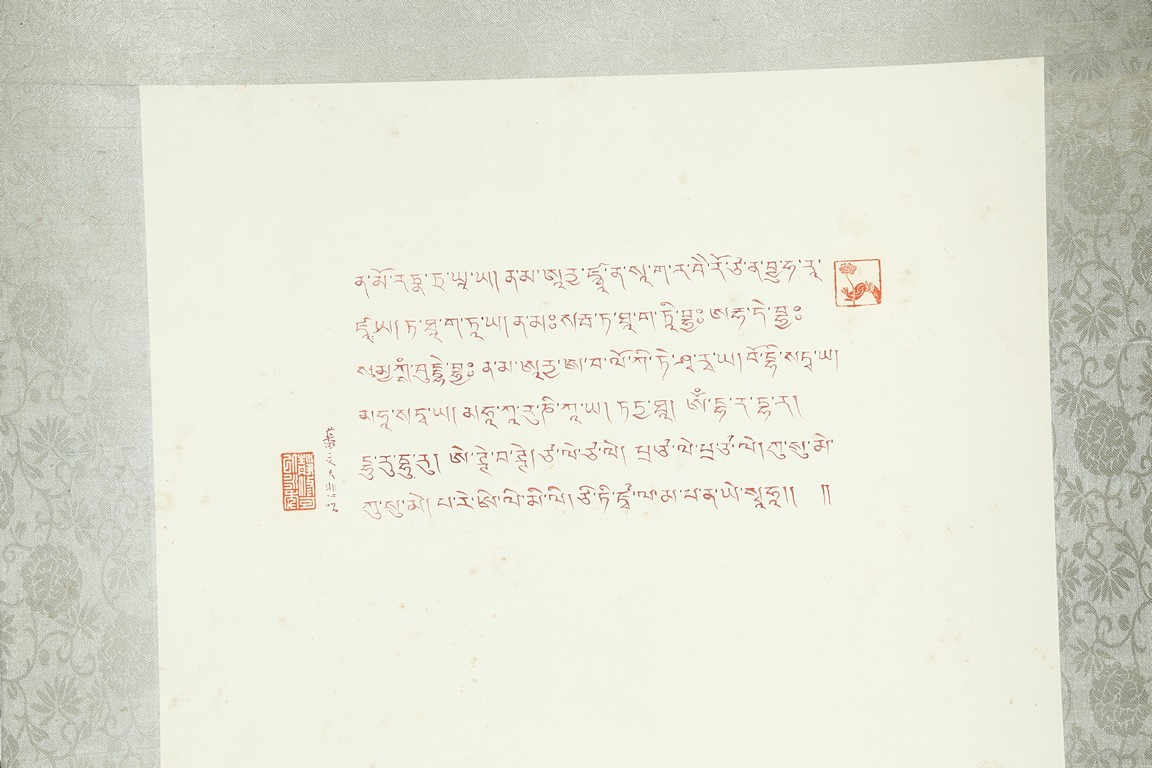 ན་མོ་ར་ཏྣ་ཏྲ་ཡཱ་ཡ། ན་མ་ཨཱརྱ་ཛྙཱ་ན་སཱ་ག་ར་བཻ་རོ་ཙ་ན་བྱུ་ཧ་རཱ་
ཛཱ་ཡ། ཏ་ཐཱ་ག་ཏཱ་ཡ། ན་མཿ་སརྦ་ཏ་ཐཱ་ག་ཏེ་བྷྱཿ་ཨརྷ་ཏེ་བྷྱཿ
སམྱཀྶཾ་བུདྡྷེ་བྷྱཿ ན་མ་ཨཱརྱ་ཨ་བ་ལོ་ཀི་ཏེ་ཤྭ་རཱ་ཡ། བོ་དྷི་སཏྭཱ་ཡ།
མ་ཧཱ་སཏྭཱ་ཡ། མ་ཧཱ་ཀཱ་རུ་ཎི་ཀཱ་ཡ། ཏདྱ་ཐཱ། ཨོཾ་དྷ་ར་དྷ་ར།
དྷུ་རུ་དྷུ་རུ། ཨེ་ཊྚེ་བ་ཊྚེ། ཙ་ལེ་ཙ་ལེ། པྲ་ཙ་ལེ་པྲ་ཙ་ལེ། ཀུ་སུ་མེ་
ཀུ་སུ་མེ། བ་རེ་ཨི་ལི་མི་ལི། ཙི་ཏི་ཛྭ་ལ་མ་པ་ན་ཡེ་སྭཱ་ཧཱ།། །།